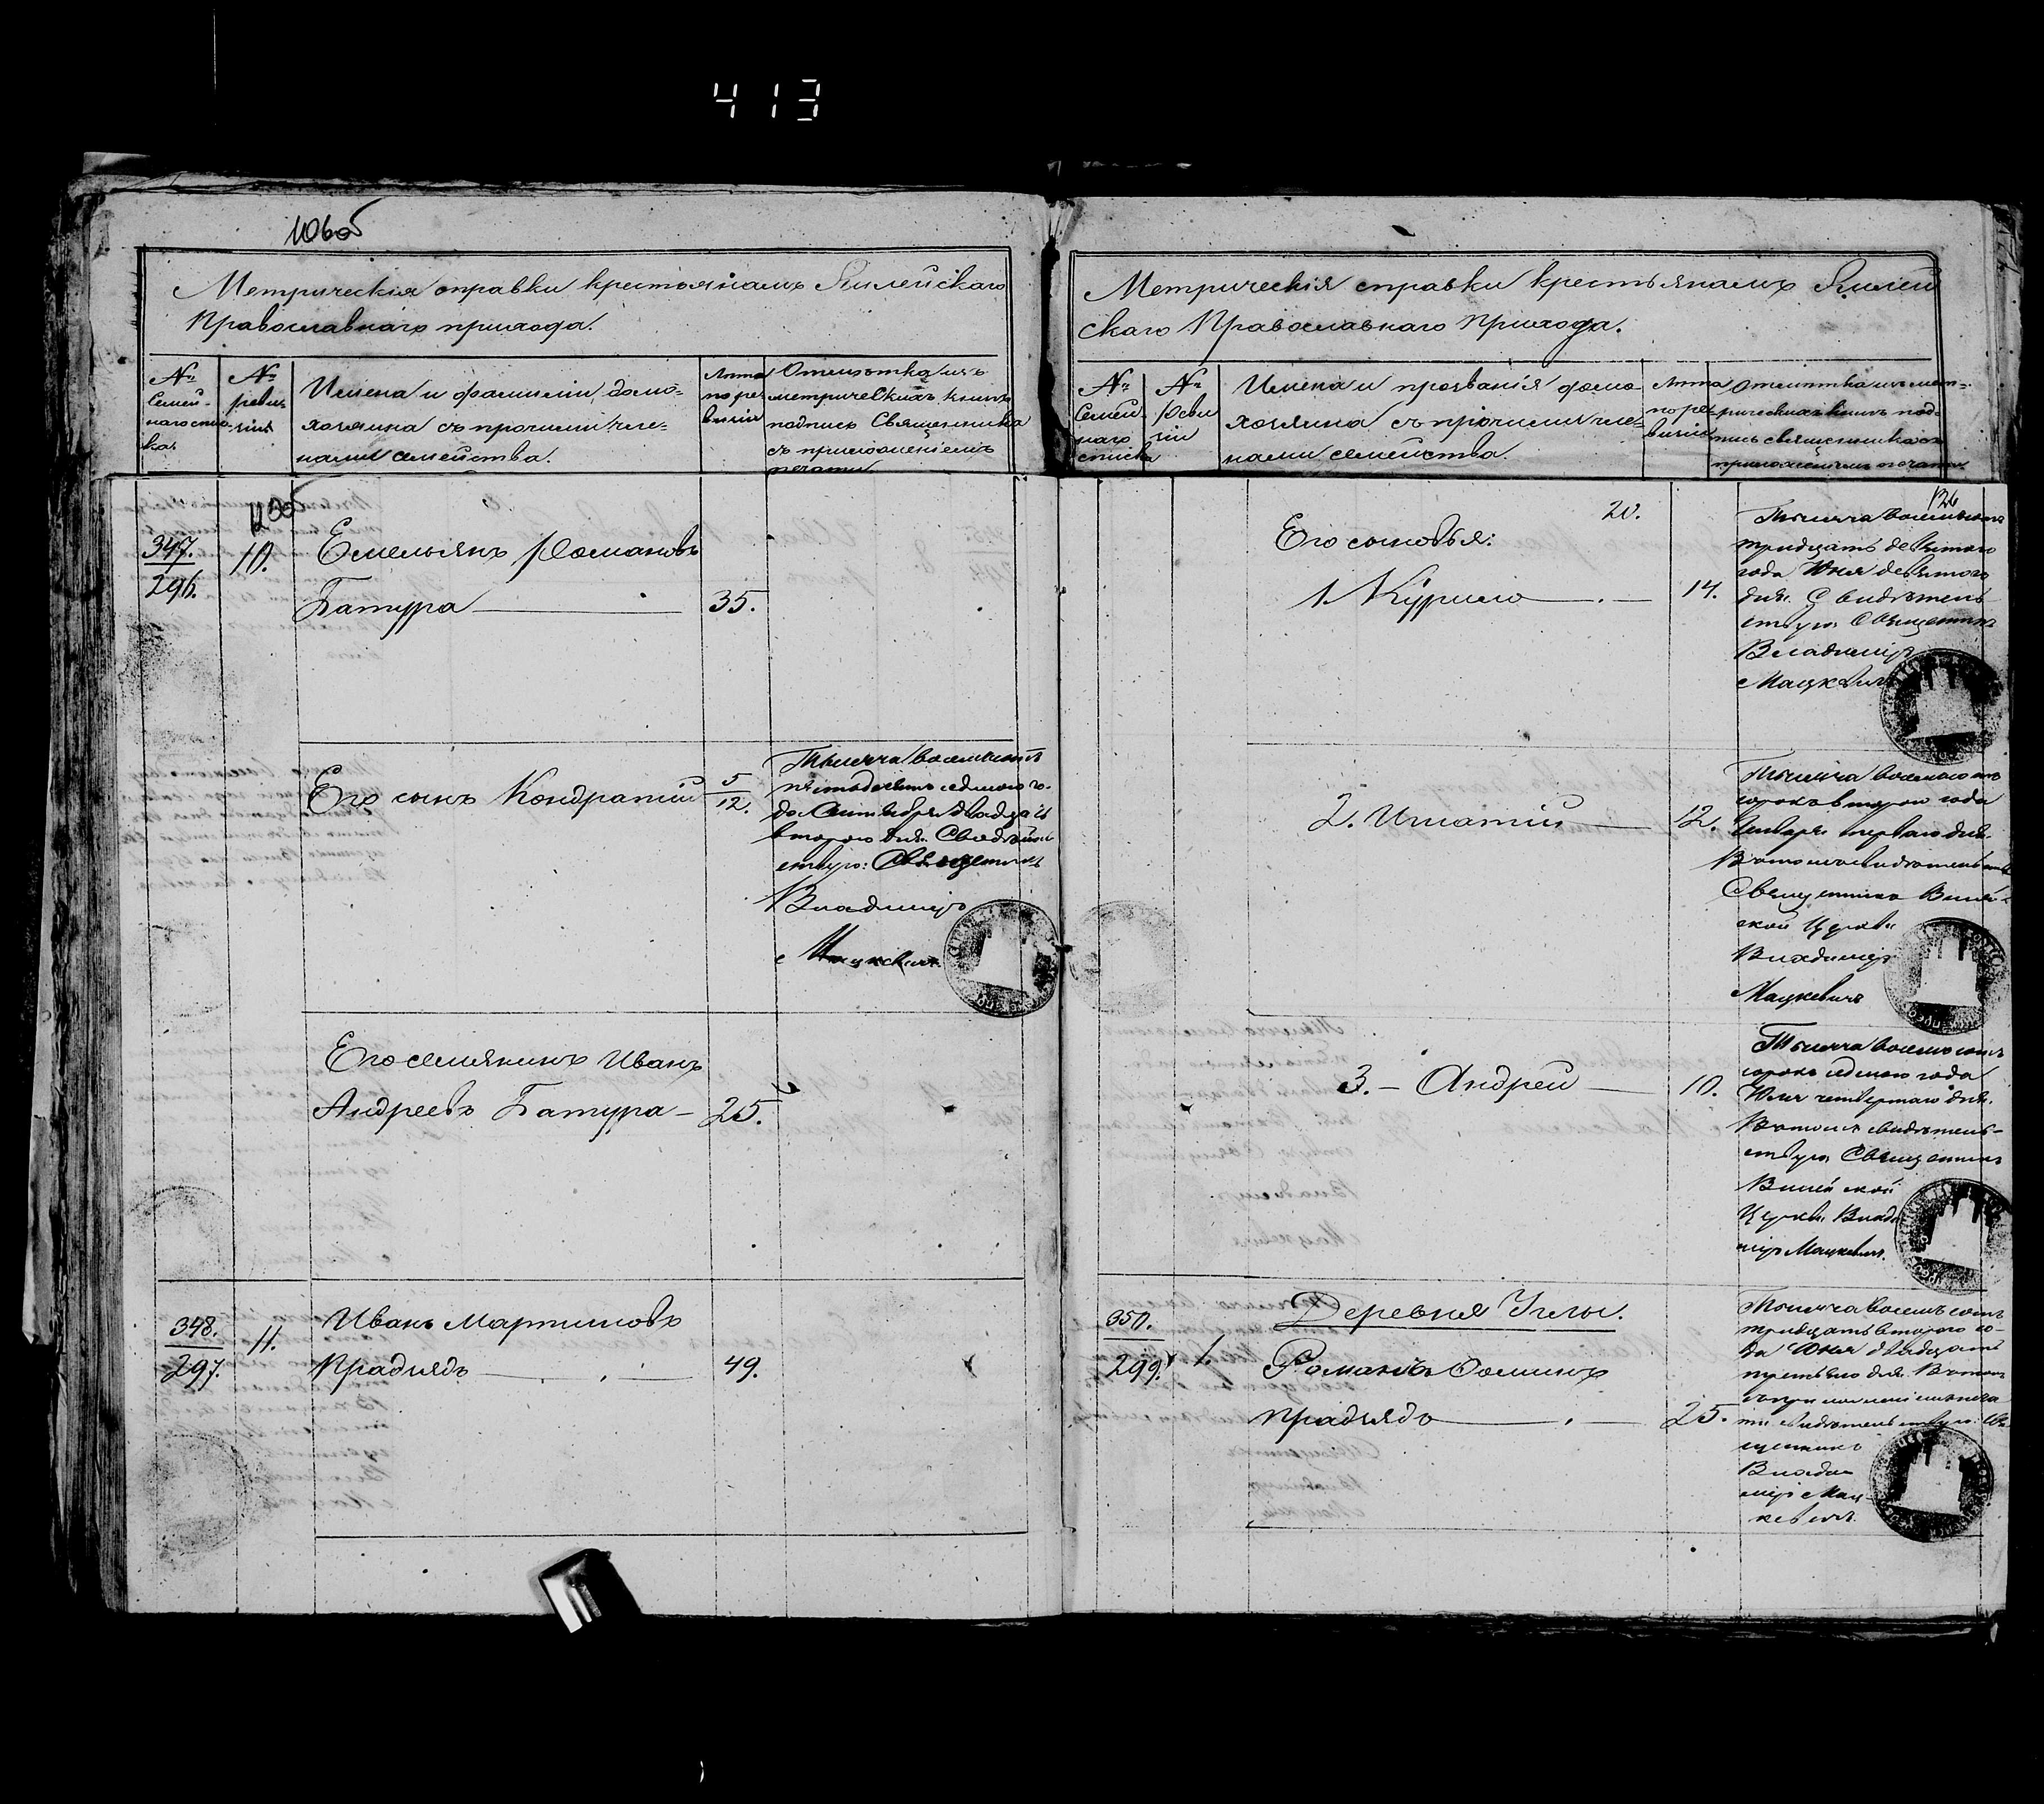 413
Метрическія справки крестьянамъ
Православнаго прихода.
№ Семей-наго спис-ка.
№ реви-зіи
Имена и фамиліи домо-
хозяина съ прочими чле-
нами семейства.
Лѣта по ревизіи
Отмѣтка изъ
метрическихъ книгъ
подпись Священника
съ приложеніемъ
печати
347.
296.
10.
Емельянъ Романовъ
Батура
35.
Его сынъ Кондратій
5/12.
Тысяча восемьсотъ
пятьдесятъ седьмого го-
да Сентября двадцать
второго дня. Свидѣтель-
ствую: Священникъ
Владиміръ
Мацкевичъ
Его семянинъ Иванъ
Андреевъ Батура
25.
348.
297.
11.
Иванъ Мартиновъ
Прадзядъ
49.
Метрическія справки крестьянамъ
скаго Православнаго Прихода.
№ Семей-наго списка
№ Реви-зіи
Имена и прозванія домо-
хозяина съ прочими чле-
нами семейства.
Лѣта по ре-визіи
Отмѣтка изъ мет-
рическихъ книгъ под-
пись священника съ
приложеніемъ печати.
126
20.
Его сыновья:
1. Курило
14.
Тысяча восемьсотъ
тридцать девятого
года Юня девятого
дня. Свидѣтель-
ствую Священникъ
Владиміръ
Мацкевичъ
2. Игнатій
12.
Тысяча восемьсотъ
сорокъ второго года
Января перваго дня.
Въ томъ свидѣтельствую
Священникъ
ской Церкви
Владиміръ
Мацкевичъ
3. – Андрей
10.
Тысяча восемьсотъ
сорокъ седьмого года
Юля четвертаго дня.
Въ томъ свидѣтель-
ствую Священникъ
Церкви Влади-
міръ Мацкевичъ.
350.
299.
1.
Деревня Углы.
Романъ Фоминъ
Прадзядъ
25.
Тысяча восемьсотъ
тридцать второго го-
да Юня двадцать
третьяго дня. Въ томъ
съ приложеніемъ печа-
ти свидѣтельствую. Свя-
щенникъ
Влади-
міръ Мац-
кевичъ